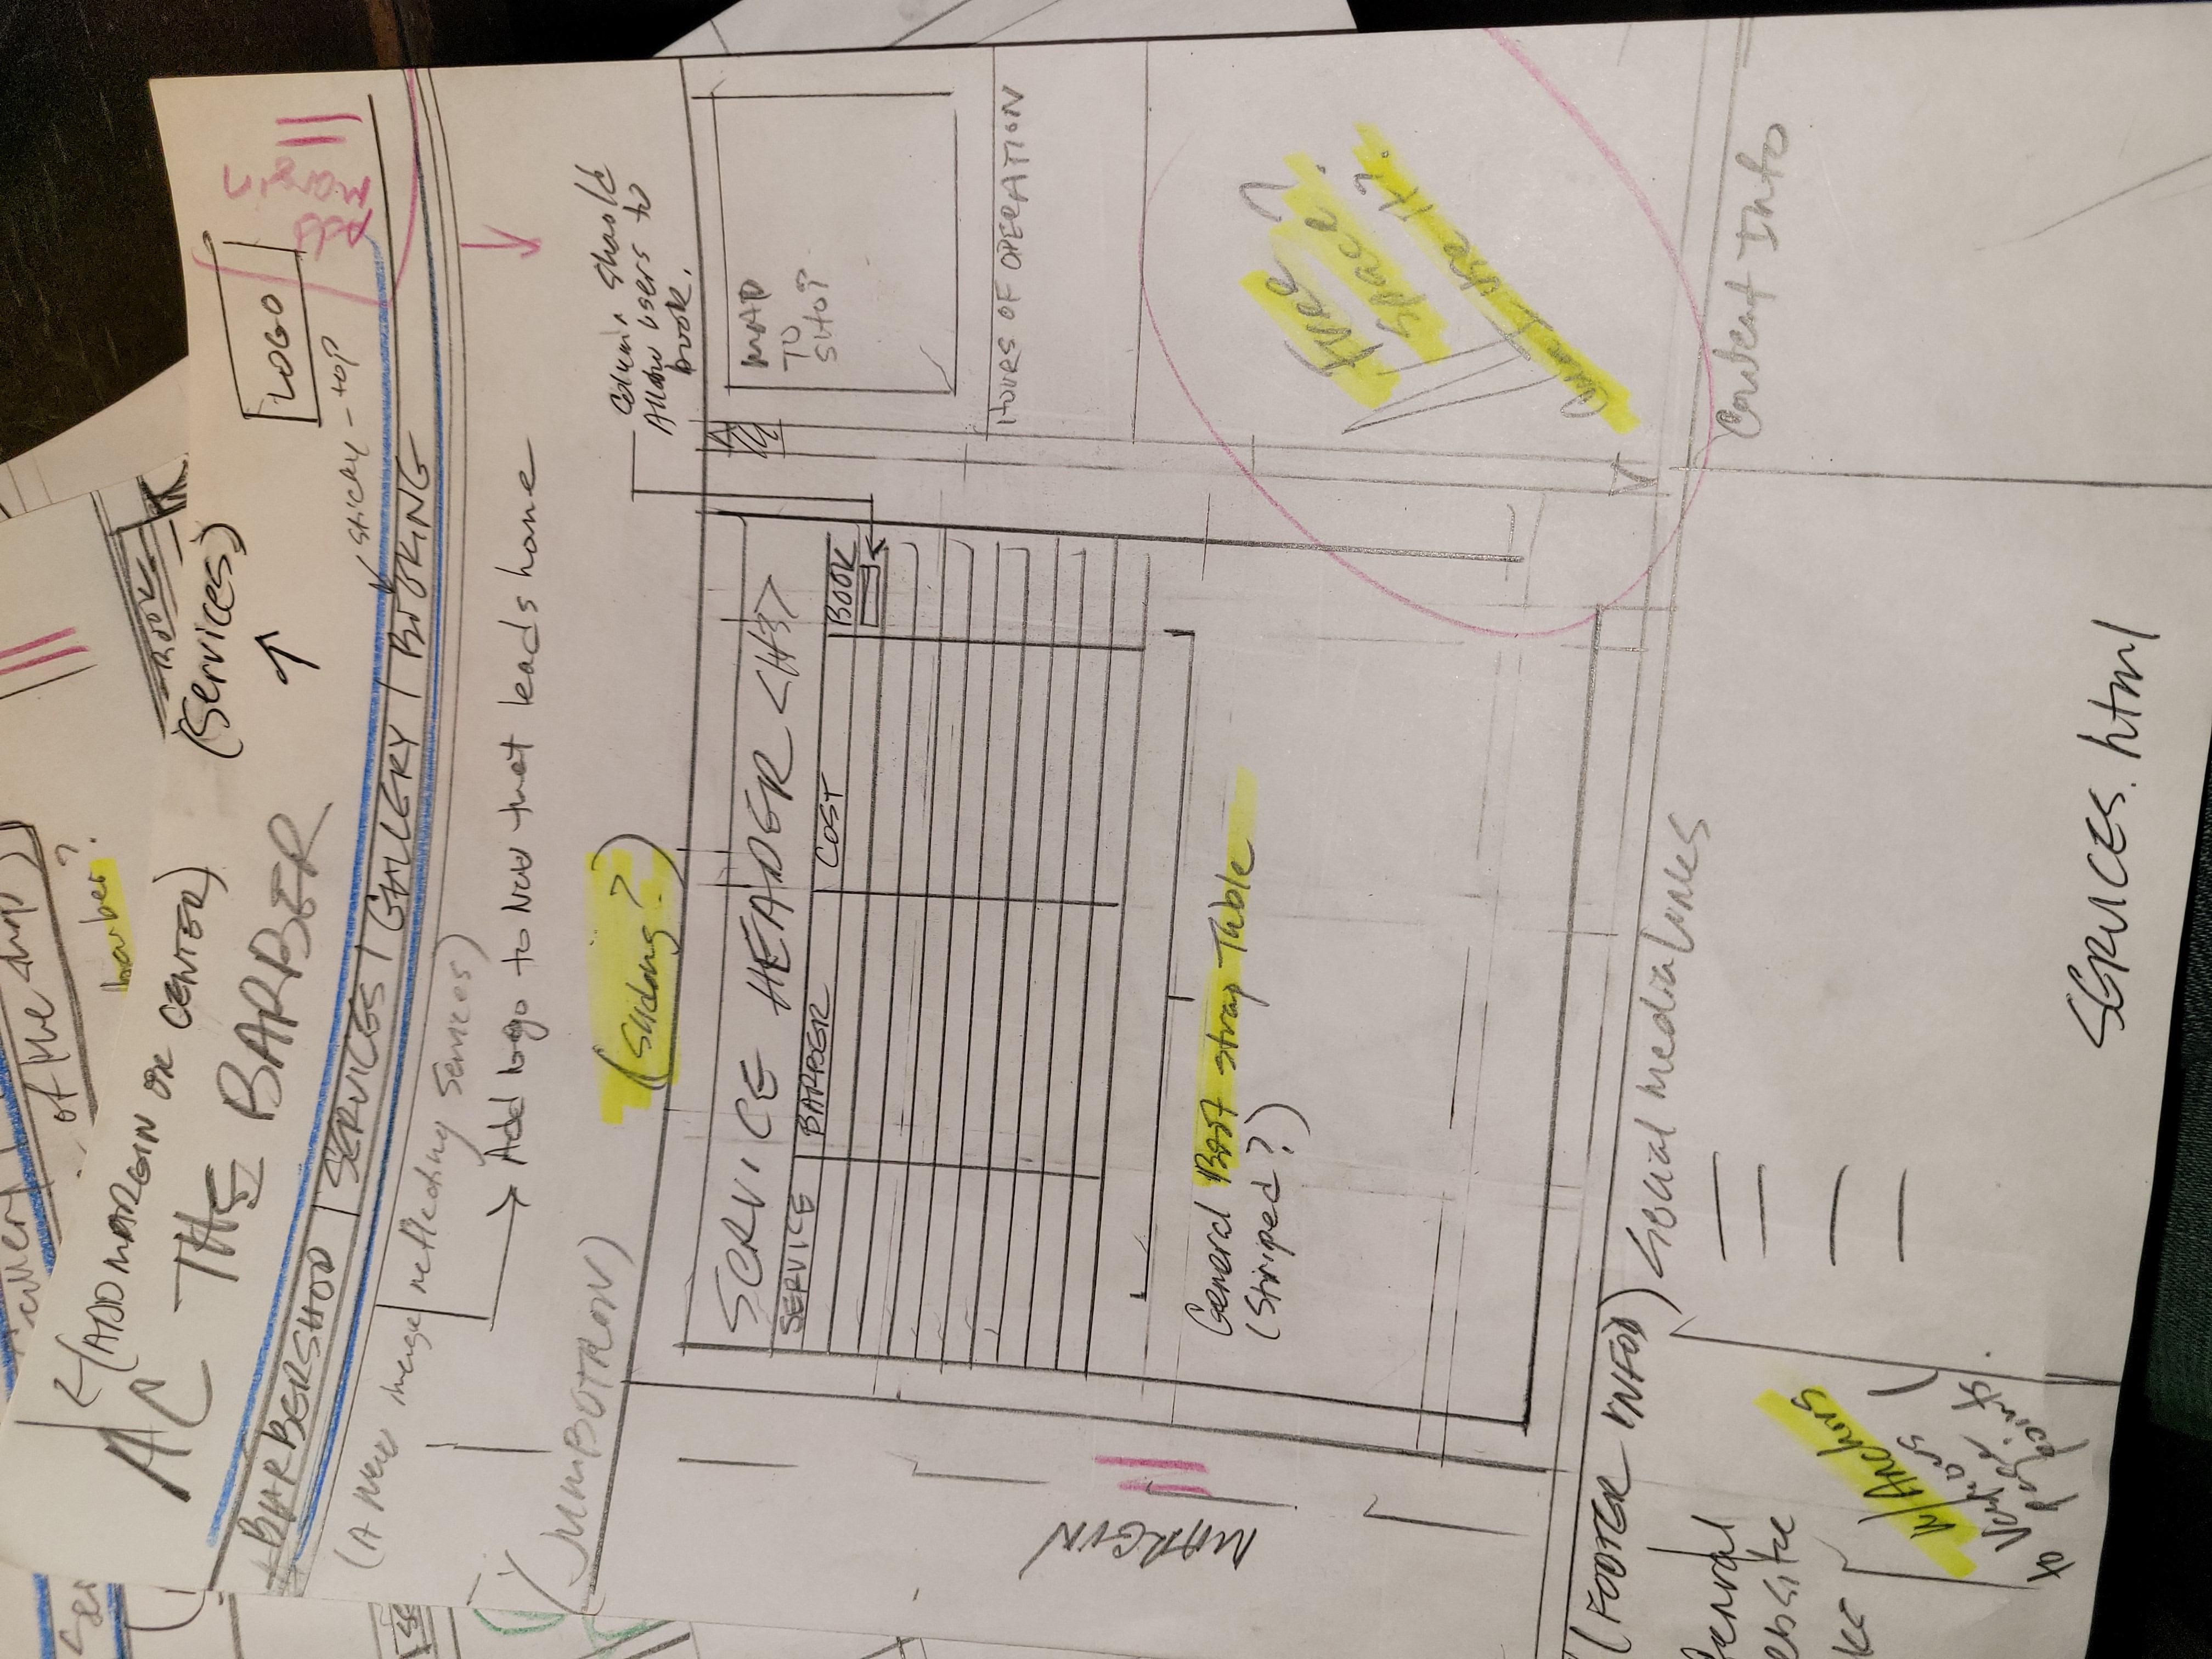 of the shop)
barber?
(ADD MARGIN OR CENTER)
AC THE BARBER
BOOK
(Services)
LOGO
Add
margin
sticky-top
BARBERSHOP | SERVICES | GALLERY | BOOKING
(A New image reflecting Services)
Add logo to Nav that leads home
(JUMBOTRON)
(Sliding?)
Column Should
Allow users to
book.
SERVICE HEADER <H3>
SERVICE BARBER COST BOOK
MAP
TO
SHOP
HOURS OF OPERATION
MARGIN
General Boot strap Table
(Striped?)
Free
space?
Can I use it?
(FOOTER INFO)
Social Media Links
Content Info
w/Anchors
to Various
page
points.
SERVICES.html